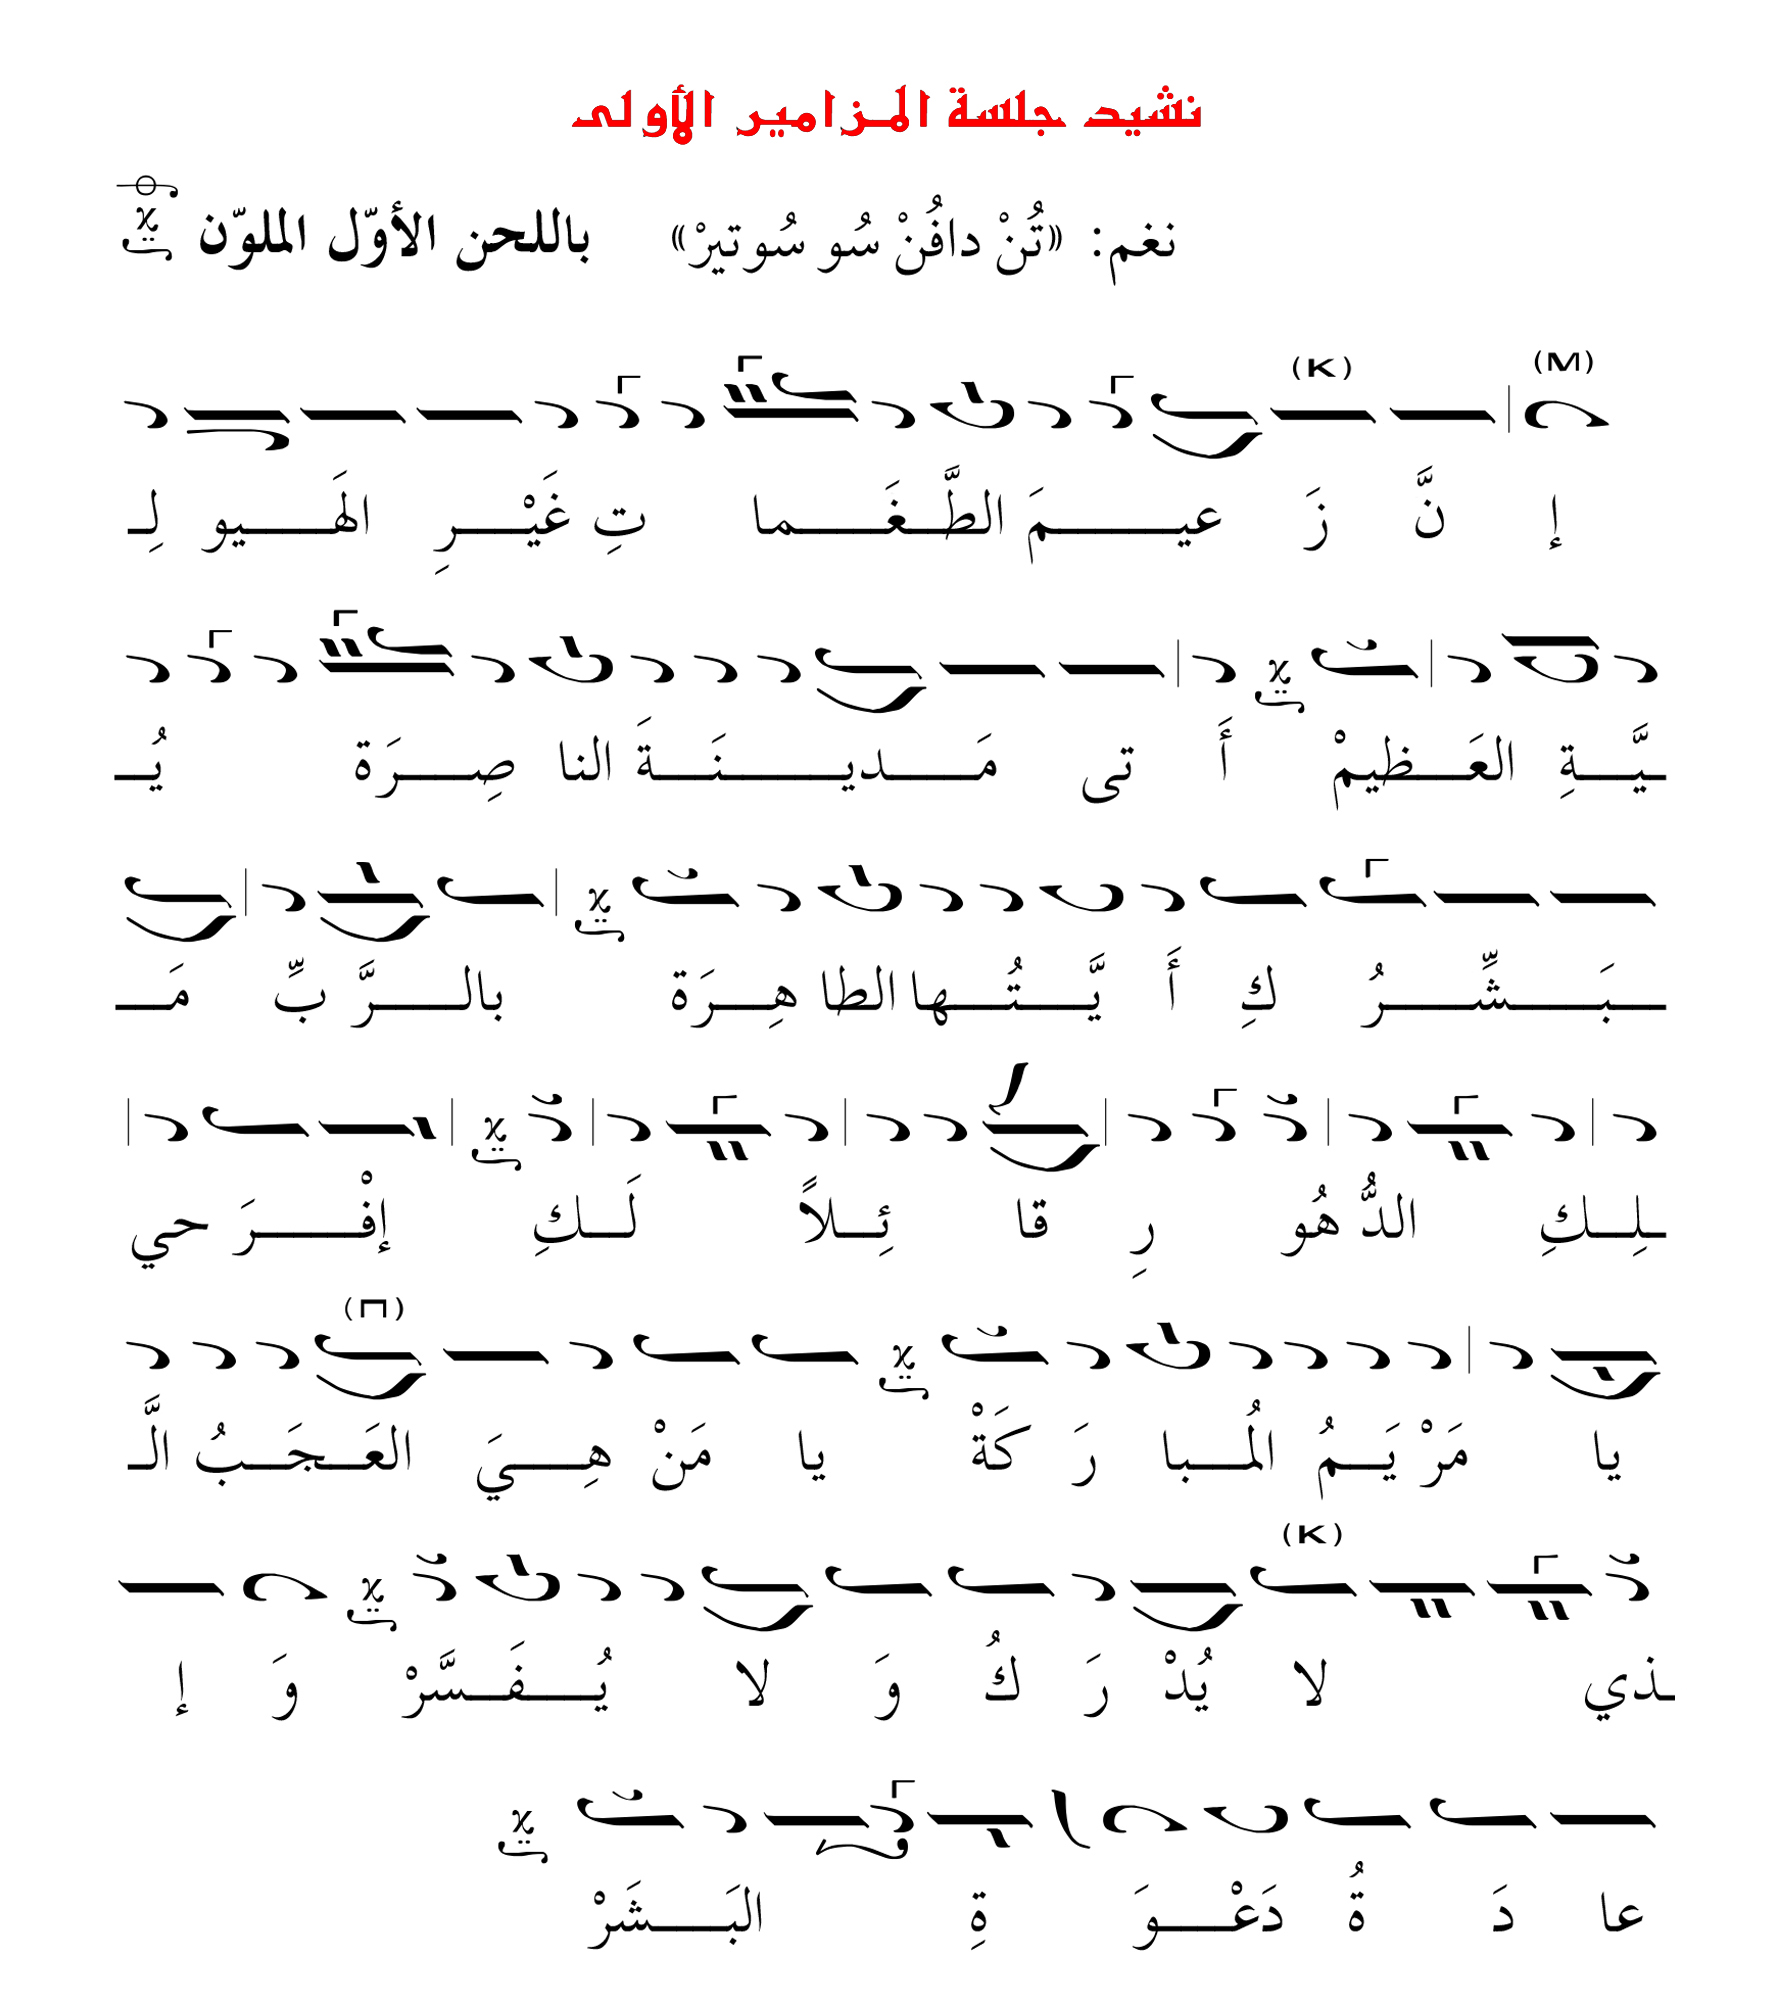 نشيد جلسة المزامير الأولى
نغم: «تُنْ دافُنْ سُو سُوتيرْ» باللحن الأوّل الملوّن
(M) (K)
إ نَّ زَ عيـمَ الطَّـغَـما تِ غَيْـرِ الهَـيو لِـ
ـيَّـةِ العَـظيمْ أَ تى مَـديـنَـةَ النا صِـرَة يُـ
ـبَـشِّـرُ كِ أَ يَّـتُـها الطا هِـرَة بالـرَّ بِّ مَـ
ـلِـكِ الدُّ هُو رِ قا ئِـلاً لَـكِ إفْـرَ حي
(Π)
يا مَرْ يَـمُ المُـبا رَ كَةْ يا مَنْ هِـيَ العَـجَـبُ الَّـ
(K)
ـذي لا يُدْ رَ كُ وَ لا يُـفَـسَّرْ وَ إ
عا دَ ةُ دَعْـوَ ةِ البَـشَرْ